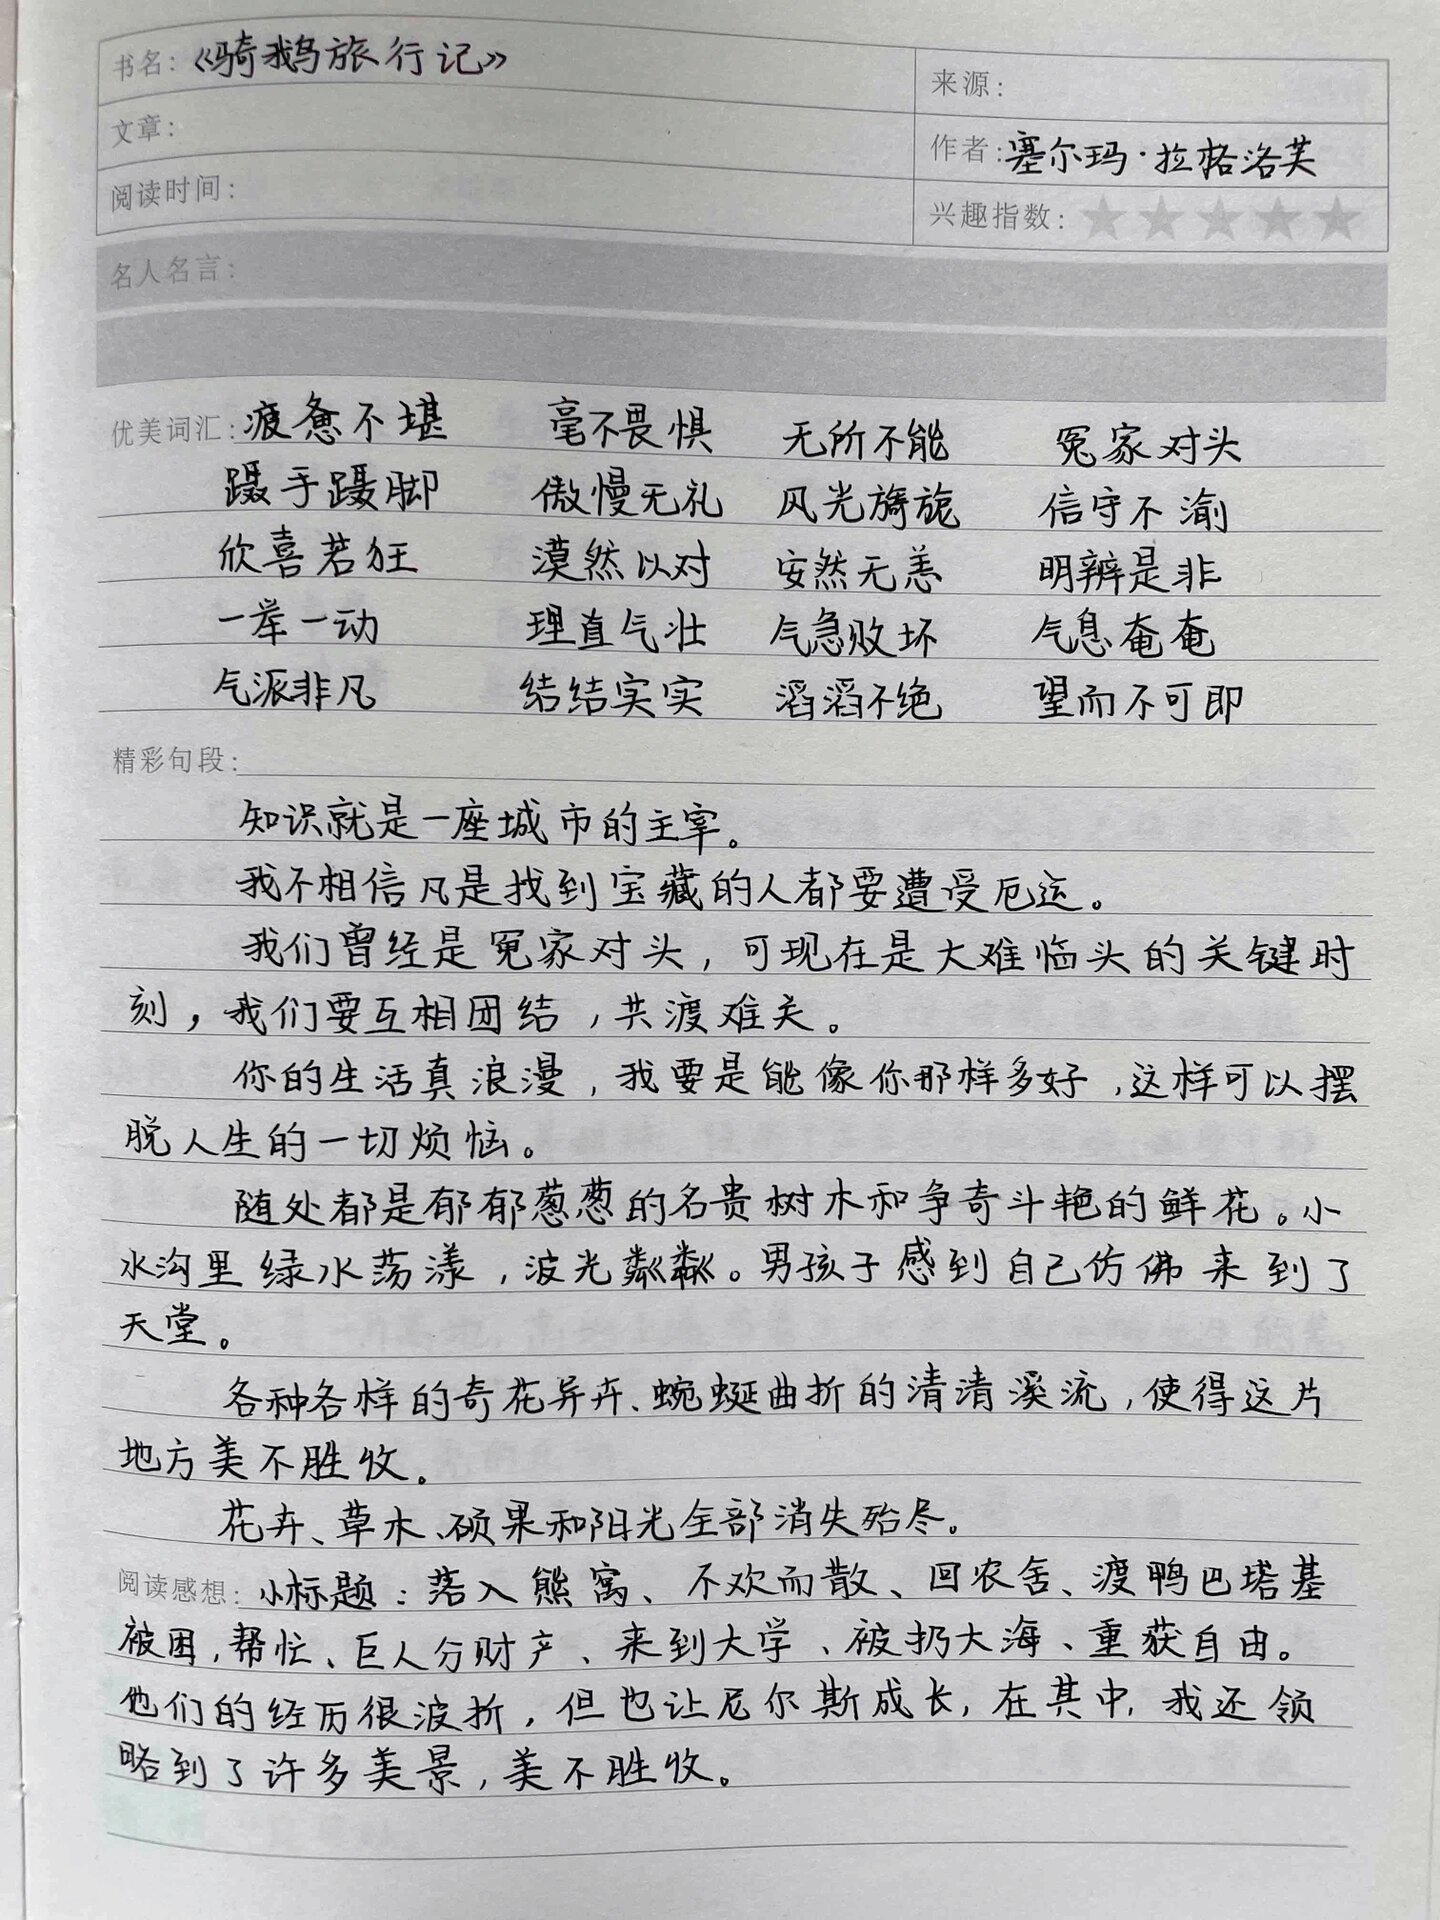 书名：《骑鹅旅行记》
来源：
文章：
作者：塞尔玛·拉格洛芙
阅读时间：
兴趣指数：
名人名言：
优美词汇：疲惫不堪 毫不畏惧 无所不能 冤家对头
蹑手蹑脚 傲慢无礼 风光旖旎 信守不渝
欣喜若狂 漠然以对 安然无恙 明辨是非
一举一动 理直气壮 气急败坏 气息奄奄
气派非凡 结结实实 滔滔不绝 望而不可即
精彩句段：
知识就是一座城市的主宰。
我不相信凡是找到宝藏的人都要遭受厄运。
我们曾经是冤家对头，可现在是大难临头的关键时
刻，我们要互相团结，共渡难关。
你的生活真浪漫，我要是能像你那样多好，这样可以摆
脱人生的一切烦恼。
随处都是郁郁葱葱的名贵树木和争奇斗艳的鲜花。小
水沟里绿水荡漾，波光粼粼。男孩子感到自己仿佛来到了
天堂。
各种各样的奇花异卉、蜿蜒曲折的清清溪流，使得这片
地方美不胜收。
花卉、草木、硕果和阳光全部消失殆尽。
阅读感想：小标题：落入熊窝、不欢而散、回农舍、渡鸭巴塔基
被困，帮忙、巨人分财产、来到大学、被扔大海、重获自由。
他们的经历很波折，但也让尼尔斯成长，在其中，我还领
略到了许多美景，美不胜收。